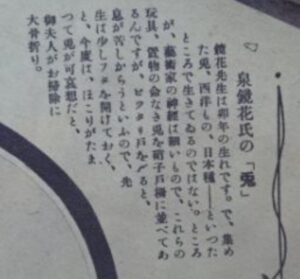 泉鏡花氏の「兎」
鏡花先生は卯年の生れです。で、集め
た兎、西洋もの、日本種――といつた
ところで生きてゐるのではない。ところ
が、藝術家の神經は細いもので、これらの
玩具、置物の命なき兎を硝子戸棚に並べてあ
るんですが、ピツタリ戸を〆ると、
息が苦しからうといふので、先
生は少しスキを開けておく、
と、今度は、ほこりがたま
つて兎が可哀想だと、
御夫人がお掃除に
大骨折り。